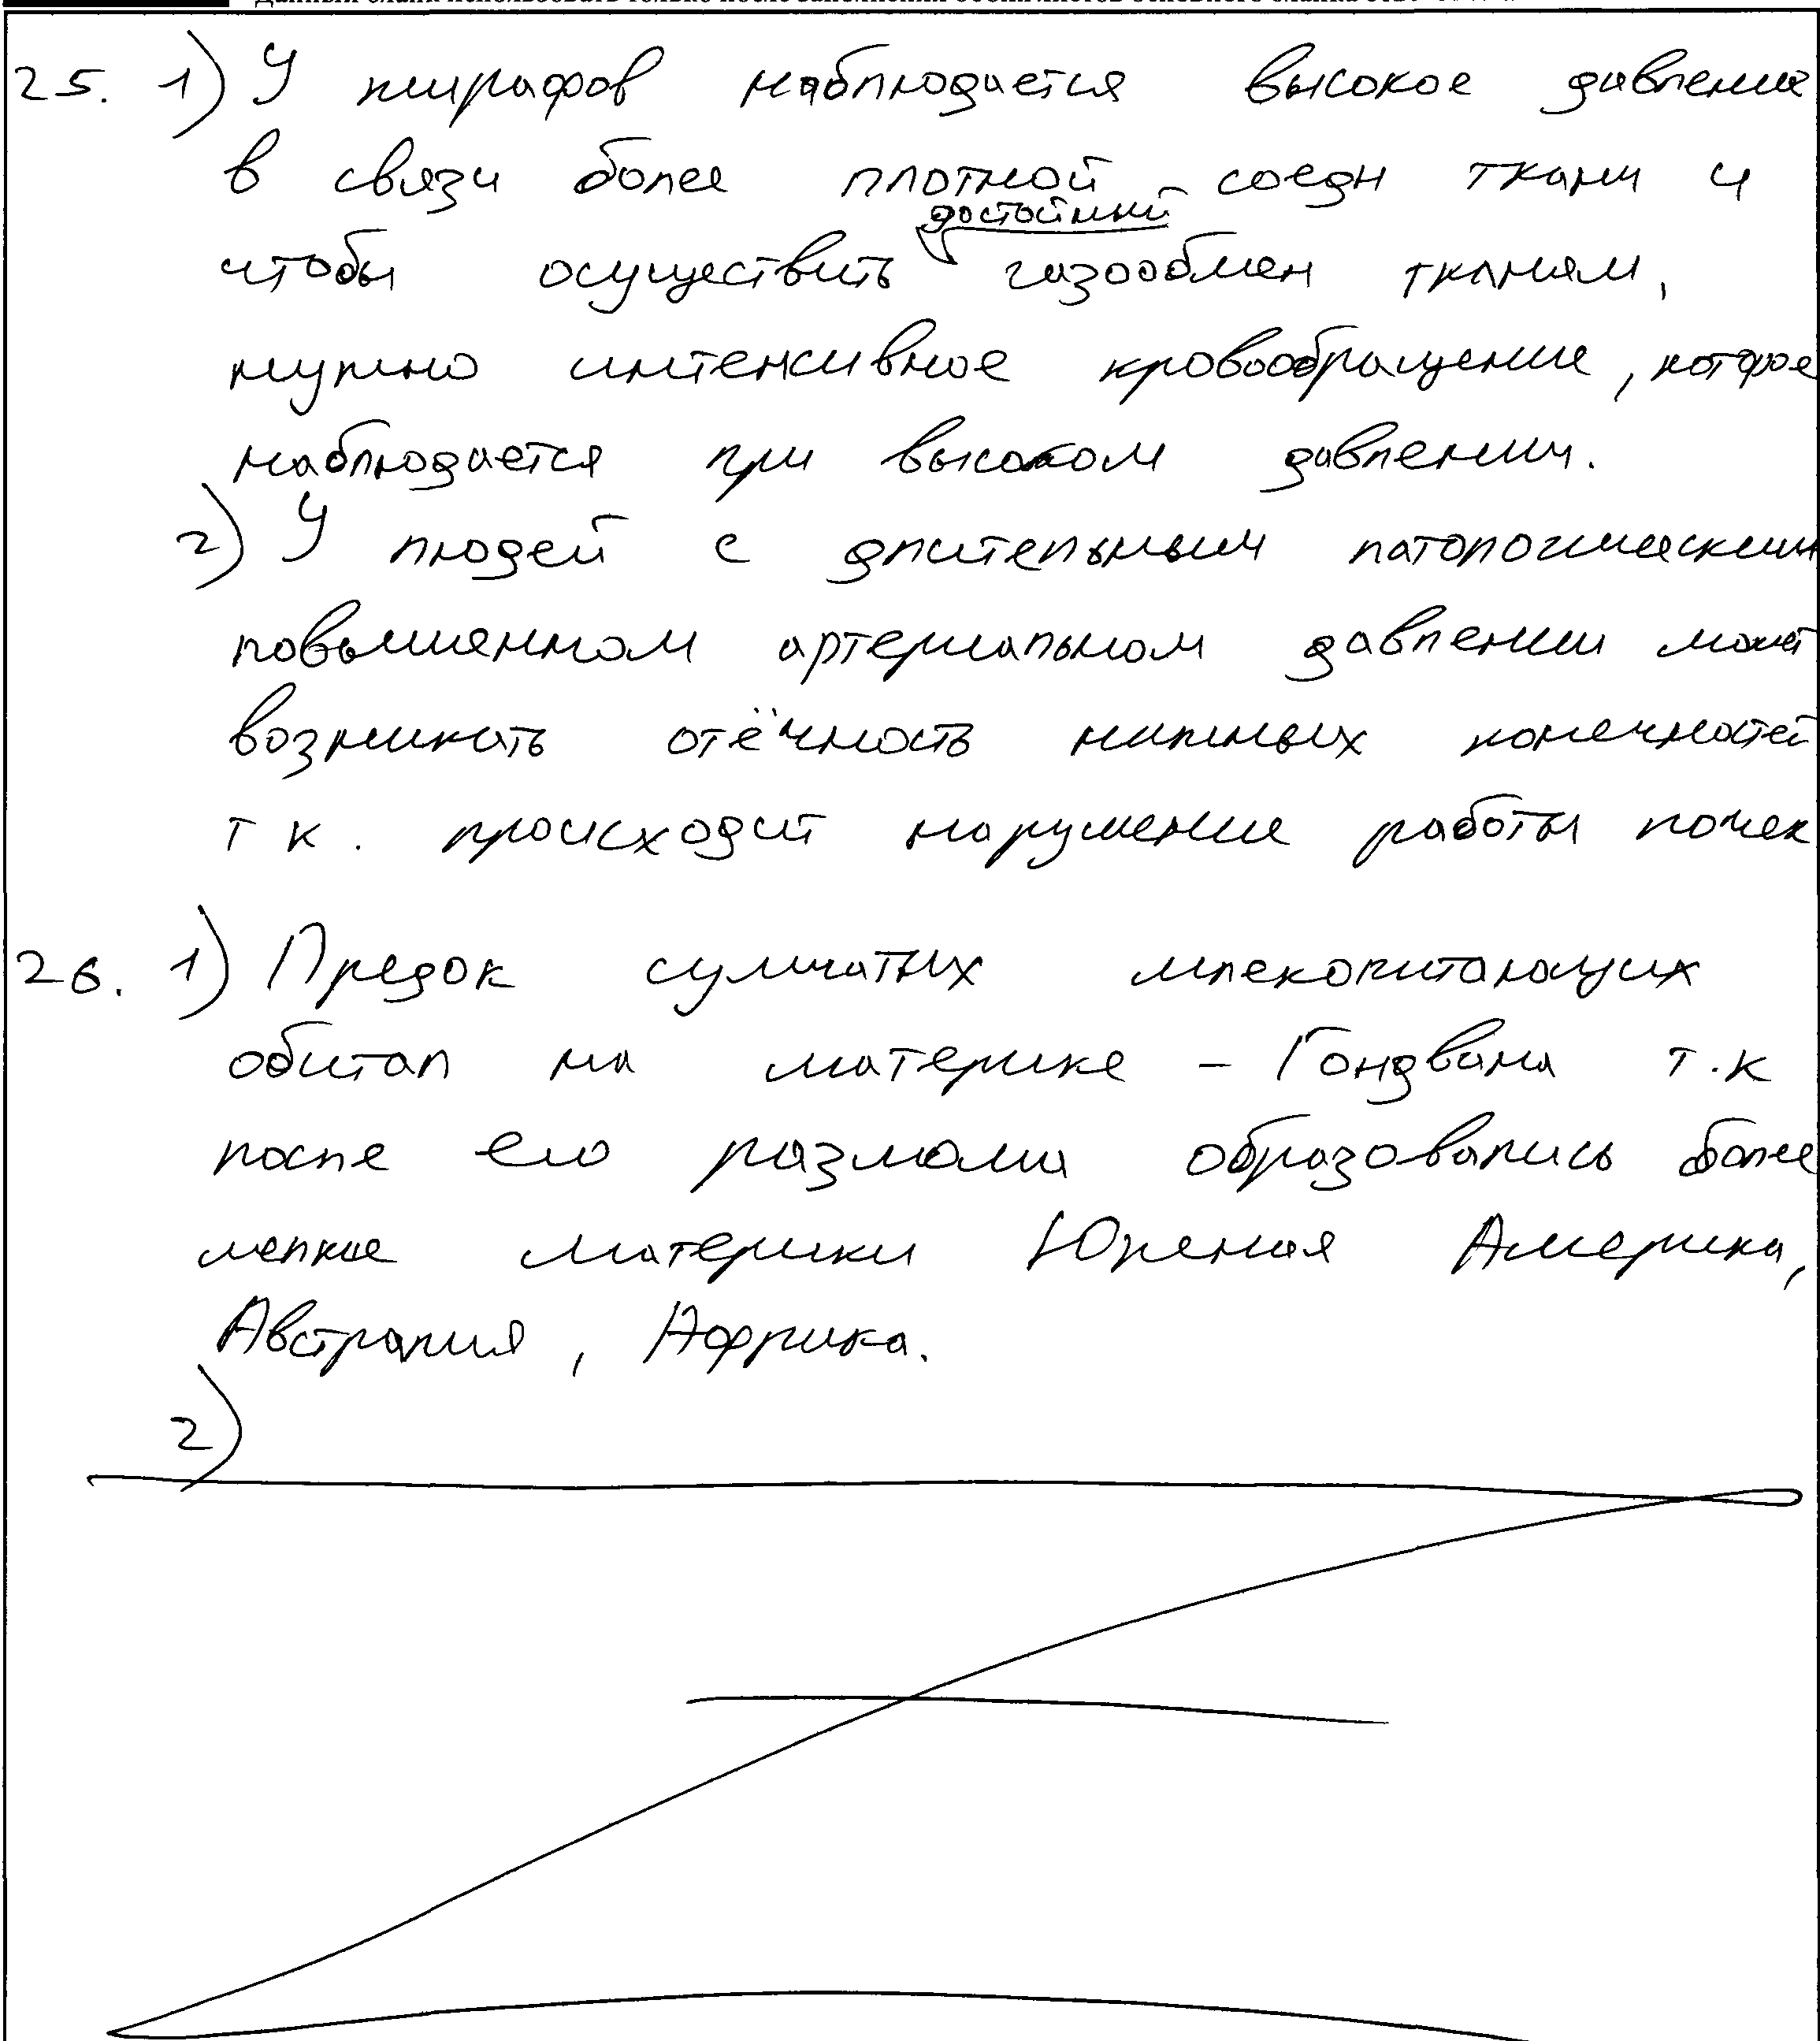 25. 1) У жирафов наблюдается высокое давление
в связи более плотной соедн ткани и
достойный
чтобы осуществить газообмен тканям,
нужно интенсивное кровообращение, которое
наблюдается при высоком давлении.
2) У людей с длительным патологическим
повышенном артериальном давлении может
возникать отёчность нижных конечностей
т к. происходит нарушение работы почек
26. 1) Предок сумчатых млекопитающих
обитал на материке - Гондвана т.к
после его разлома образовались более
мелкие материки Южная Америка,
Австралия, Африка.
2)